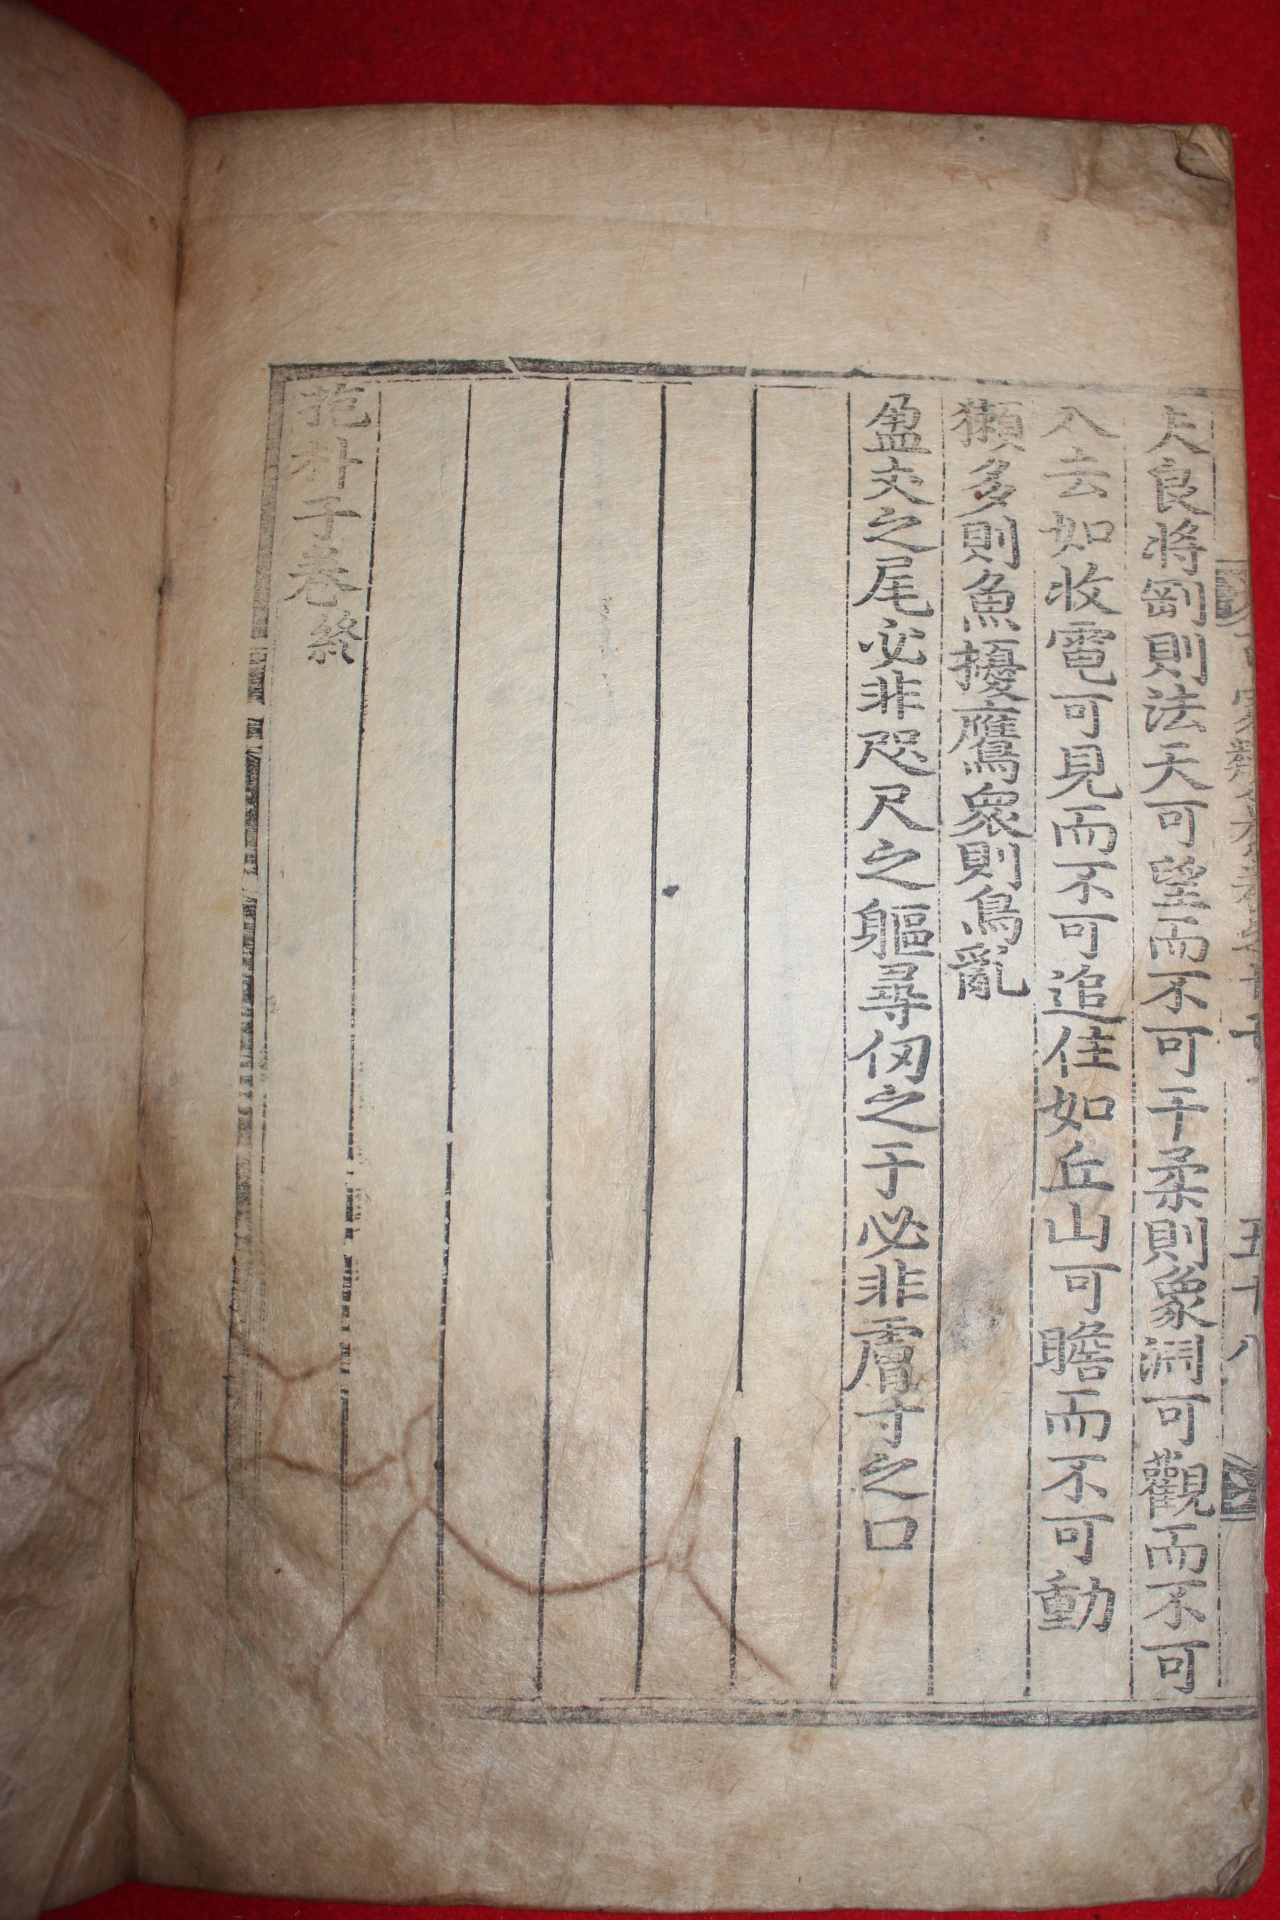 夫良將剛則法天可望而不可干柔則象淵可觀而不可
入去如收電可見而不可追住如丘山可瞻而不可動
獺多則魚擾鷹衆則鳥亂
盈丈之尾必非咫尺之軀尋仞之于必非膚寸之口
抱朴子卷終
百家類纂卷之十七
五十八